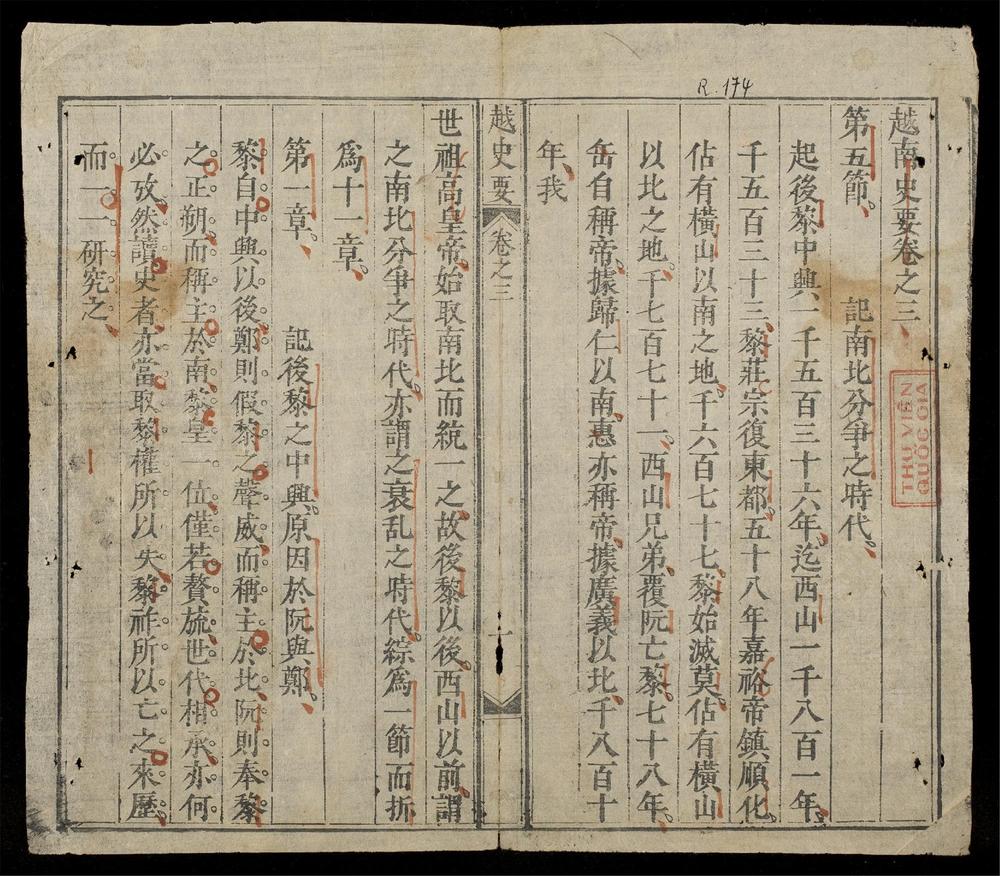 R. 174
越南史要卷之三
第五節 記南北分爭之時代
起後黎中興一千五百三十六年迄西山一千八百一年
千五百三十三黎莊宗復東都五十八年嘉裕帝鎮順化
佔有橫山以南之地千六百七十七黎始滅莫佔有橫山
以北之地千七百七十一西山兄弟覆阮亡黎七十八年
岳自稱帝據歸仁以南惠亦稱帝據廣義以北千八百十
年我
越史要 卷之三 一
世祖高皇帝始取南北而統一之故後黎以後西山以前謂
之南北分爭之時代亦謂之衰乱之時代綜爲一節而折
爲十一章
第一章 記後黎之中興原因於阮與鄭
黎自中興以後鄭則假黎之聲威而稱主於北阮則奉黎
之正朔而稱主於南黎皇一位僅若贅旒世代相承亦何
必攷然讀史者亦當取黎權所以失黎祚所以亡之來歷
而一一研究之
THƯ VIỆN
QUỐC GIA